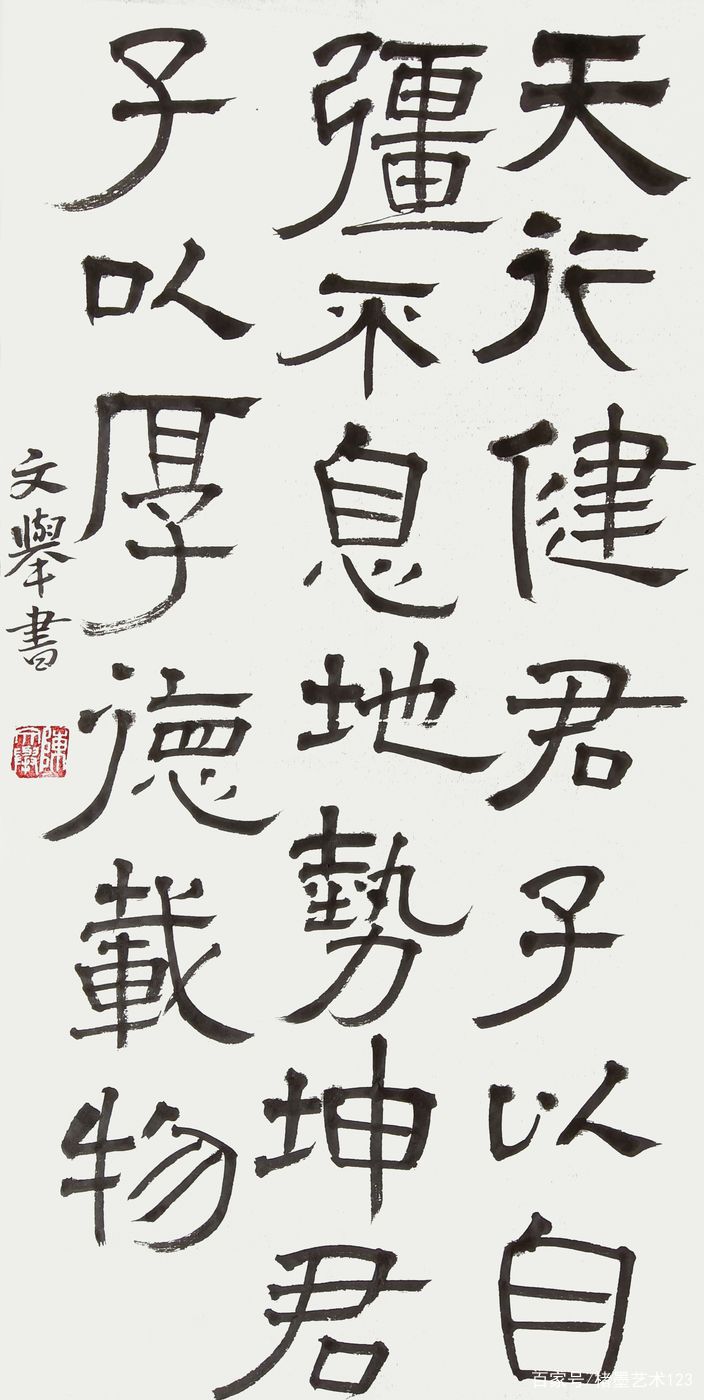 天行健君子以自
彊不息地勢坤君
子以厚德載物
文舉書
陳文舉
百家号/楮墨艺术123